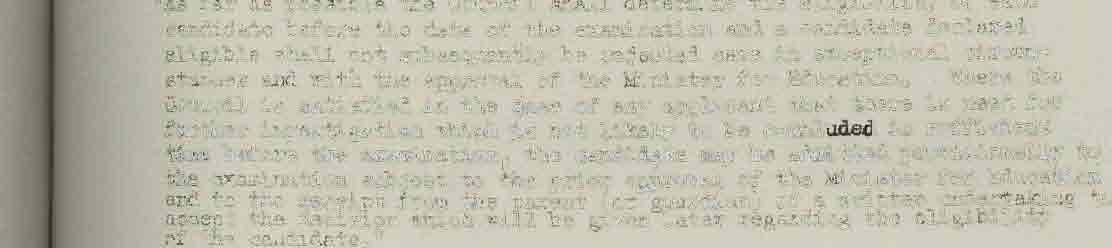 "As far as possible the Council shall determine the eligibility of each
candidate before the date of the examination and a candidate declared
eligible shall not subsequently be rejected save in exceptional circum-
stances and with the approval of the Minister for Education. Where the
Council is satisfied in the case of any applicant that there is need for
further investigation which is not likely to be concluded in sufficient
time before the examination, the candidate may be admitted provisionally to
the examination subject to the prior approval of the Minister for Education
and to the receipt from the parent (or guardian) of a written undertaking to
accept the decision which will be given later regarding the eligibility
of the candidate."